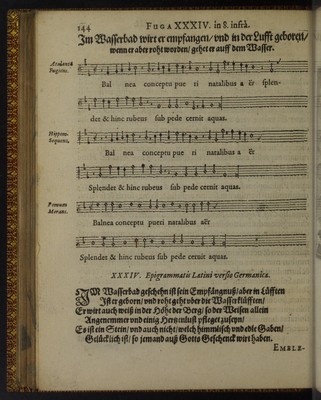 144 FUGA XXXIV. in 8. infrà.
Im Wasserbad wirt er empfangen/ vnd in der Lufft geboren/
wenn er aber roht worden/ gehet er auff dem Wasser.
Atalanta
Fugiens.
Bal nea conceptu pue ri natalibus aër splen-
det & hinc rubeus sub pede cernit aquas.
Hippom.
Sequens.
Bal nea conceptu pue ri natalibus aër
Splendet & hinc rubeus sub pede cernit aquas.
Pomum
Morans.
Balnea conceptu pueri natalibus aër
Splendet & hinc rubeus sub pede cernit aquas.
XXXIV. Epigrammatis Latini versio Germanica.
IM Wasserbad geschehn ist sein Empfängnuß/ aber in Lüfften
Ist er geborn/ vnd roht geht vber die Wasserklüfften/
Er wirt auch weiß in der Höhe der Berg/ so der Weisen allein
Angenemmer vnd einig Hertzenlust pfleget zuseyn/
Es ist ein Stein/ vnd auch nicht/ welch himmlisch vnd edle Gaben/
Gelücklich ist/ so jemand auß Gotts Geschenck wirt haben.
EMBLE-